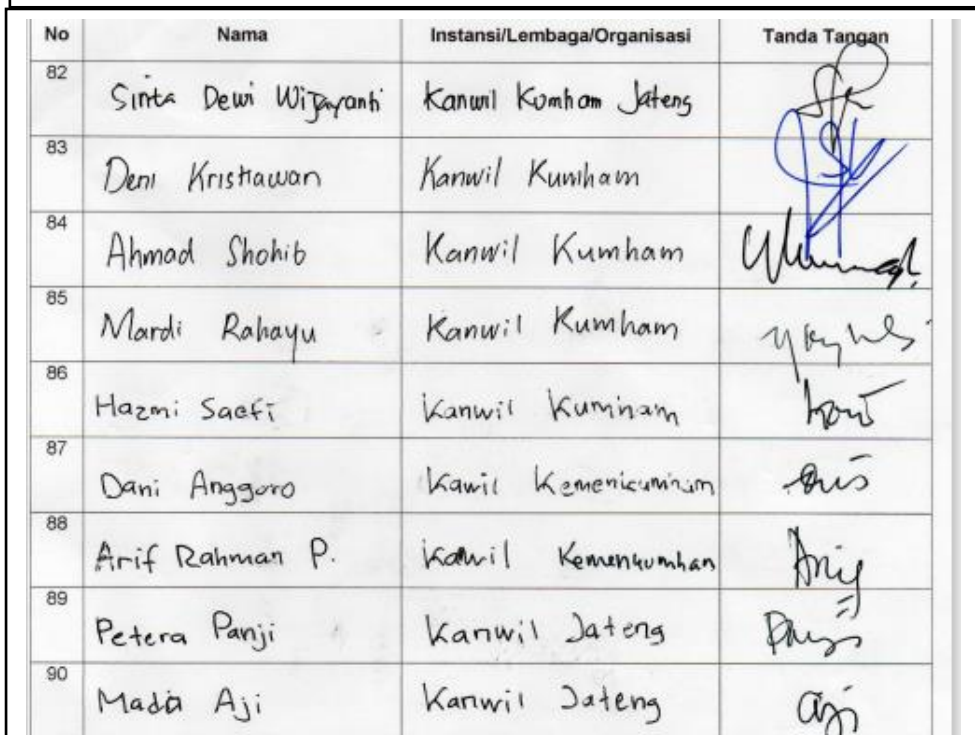 No Nama Instansi/Lembaga/Organisasi Tanda Tangan
82 Sinta Dewi Wijayanti Kanwil Kumham Jateng
83 Deni Kristiawan Kanwil Kumham
84 Ahmad Shohib Kanwil Kumham
85 Mardi Rahayu Kanwil Kumham
86 Hazmi Saefi Kanwil Kumham
87 Dani Anggoro Kawil
88 Arif Rahman P. Kawil Kemenkumhan
89 Petera Panji Kanwil Jateng
90 Mada Aji Kanwil Jateng aji